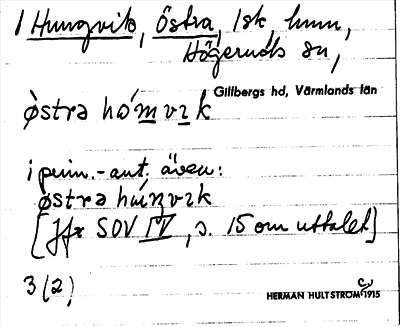 1 Hungvik, Östra, 1sk, hmn,
Högeruds sn,
Gillbergs hd, Värmlands län
òstrə hómvɪk
i prim.-ant. även:
òstrə húŋvɪk
[Jfr SOV IV, s. 15 om uttalet]
3(2)
HERMAN HULTSTRÖM 1915